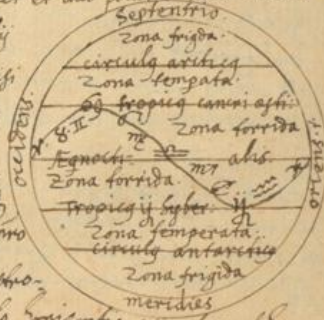 Septentrio
Zona frigida.
circulq arcticq
Zona tempata.
♋ tropicq cancri æsti:
♈ ♉ ♊ ♌ Zona torrida
♍
Ægnocti: ♎ alis.
Zona torrida. ♏
Tropicq ij hyber:
Zona temperata:
circulq antarcticq
Zona frigida
meridies
oriens